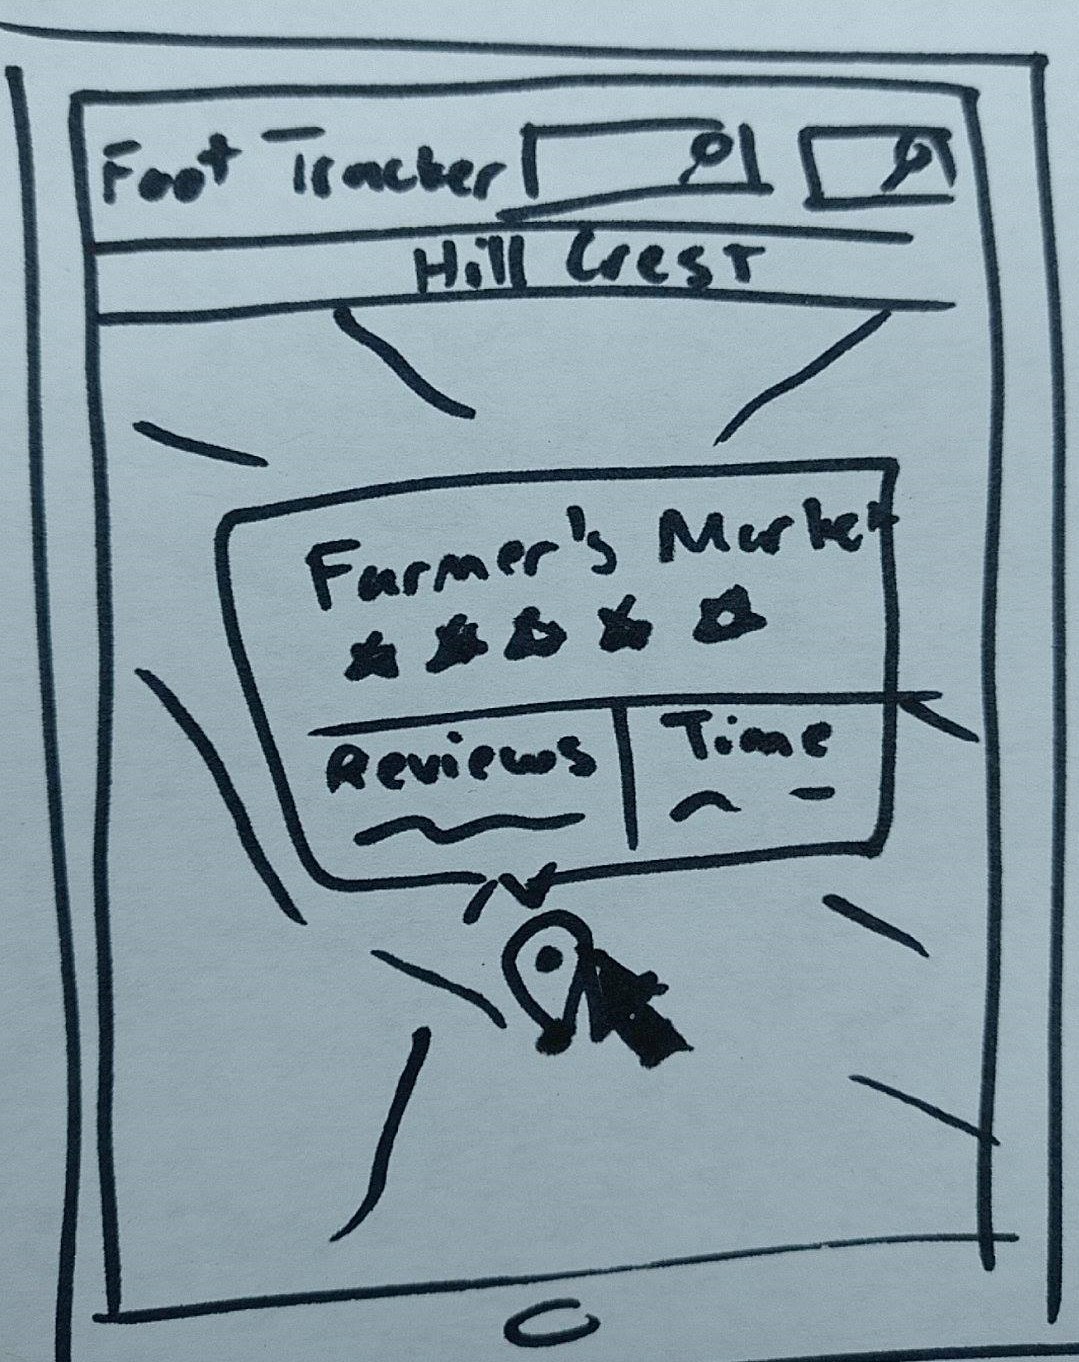 Foot Tracker
Hill Crest
Farmer's Market
Reviews
Time